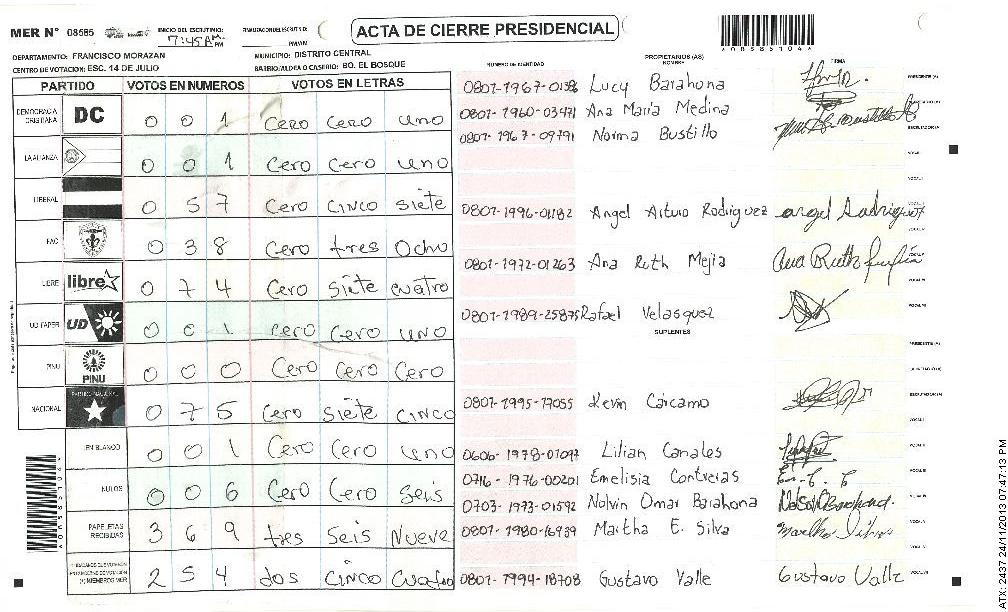 MER N° 08585
INICIO DEL ESCRUTINIO: 7:45 AM PM
ACTA DE CIERRE PRESIDENCIAL
A08585104
DEPARTAMENTO: FRANCISCO MORAZAN MUNICIPIO: DISTRITO CENTRAL
CENTRO DE VOTACION: ESC. 14 DE JULIO BARRIO/ALDEA O CASERIO: BO. EL BOSQUE
NUMERO DE IDENTIDAD PROPIETARIOS (AS) NOMBRE FIRMA
PARTIDO VOTOS EN NUMEROS VOTOS EN LETRAS
DEMOCRACIA CRISTIANA DC 0 0 1 Cero Cero uno
LA ALIANZA 0 0 1 Cero Cero uno
LIBERAL 0 5 7 Cero CINCO Siete
FAC 0 3 8 Cero tres Ocho
LIBRE libre 0 7 4 Cero Siete cuatro
UD FAPER UD 0 0 1 Cero Cero uno
PINU PINU 0 0 0 Cero Cero Cero
NACIONAL PARTIDO NACIONAL 0 7 5 Cero Siete CINCO
EN BLANCO 0 0 1 Cero Cero uno
NULOS 0 0 6 Cero Cero Seis
PAPELETAS RECIBIDAS 3 6 9 tres Seis Nueve
2 5 4 dos CINCO Cuatro
0801-1967-01386 Lucy Barahona
0801-1960-03471 Ana Maria Medina
0801-1967-09791 Norma Bustillo
0801-1996-01182 Angel Arturo Rodriguez
0801-1972-01263 Ana Ruth Mejia
0801-1989-25875 Rafael Velasquez
SUPLENTES
0801-1995-17055 Kevin Carcamo
0606-1978-01097 Lilian Canales
0716-1976-00201 Emelisia Contreras
0703-1973-01592 Nolvin Omar Barahona
0801-1980-16939 Martha E. Silva
0801-1994-18708 Gustavo Valle Gustavo Valle
A08585104
ATX: 2437 24/11/2013 07:47:13 PM